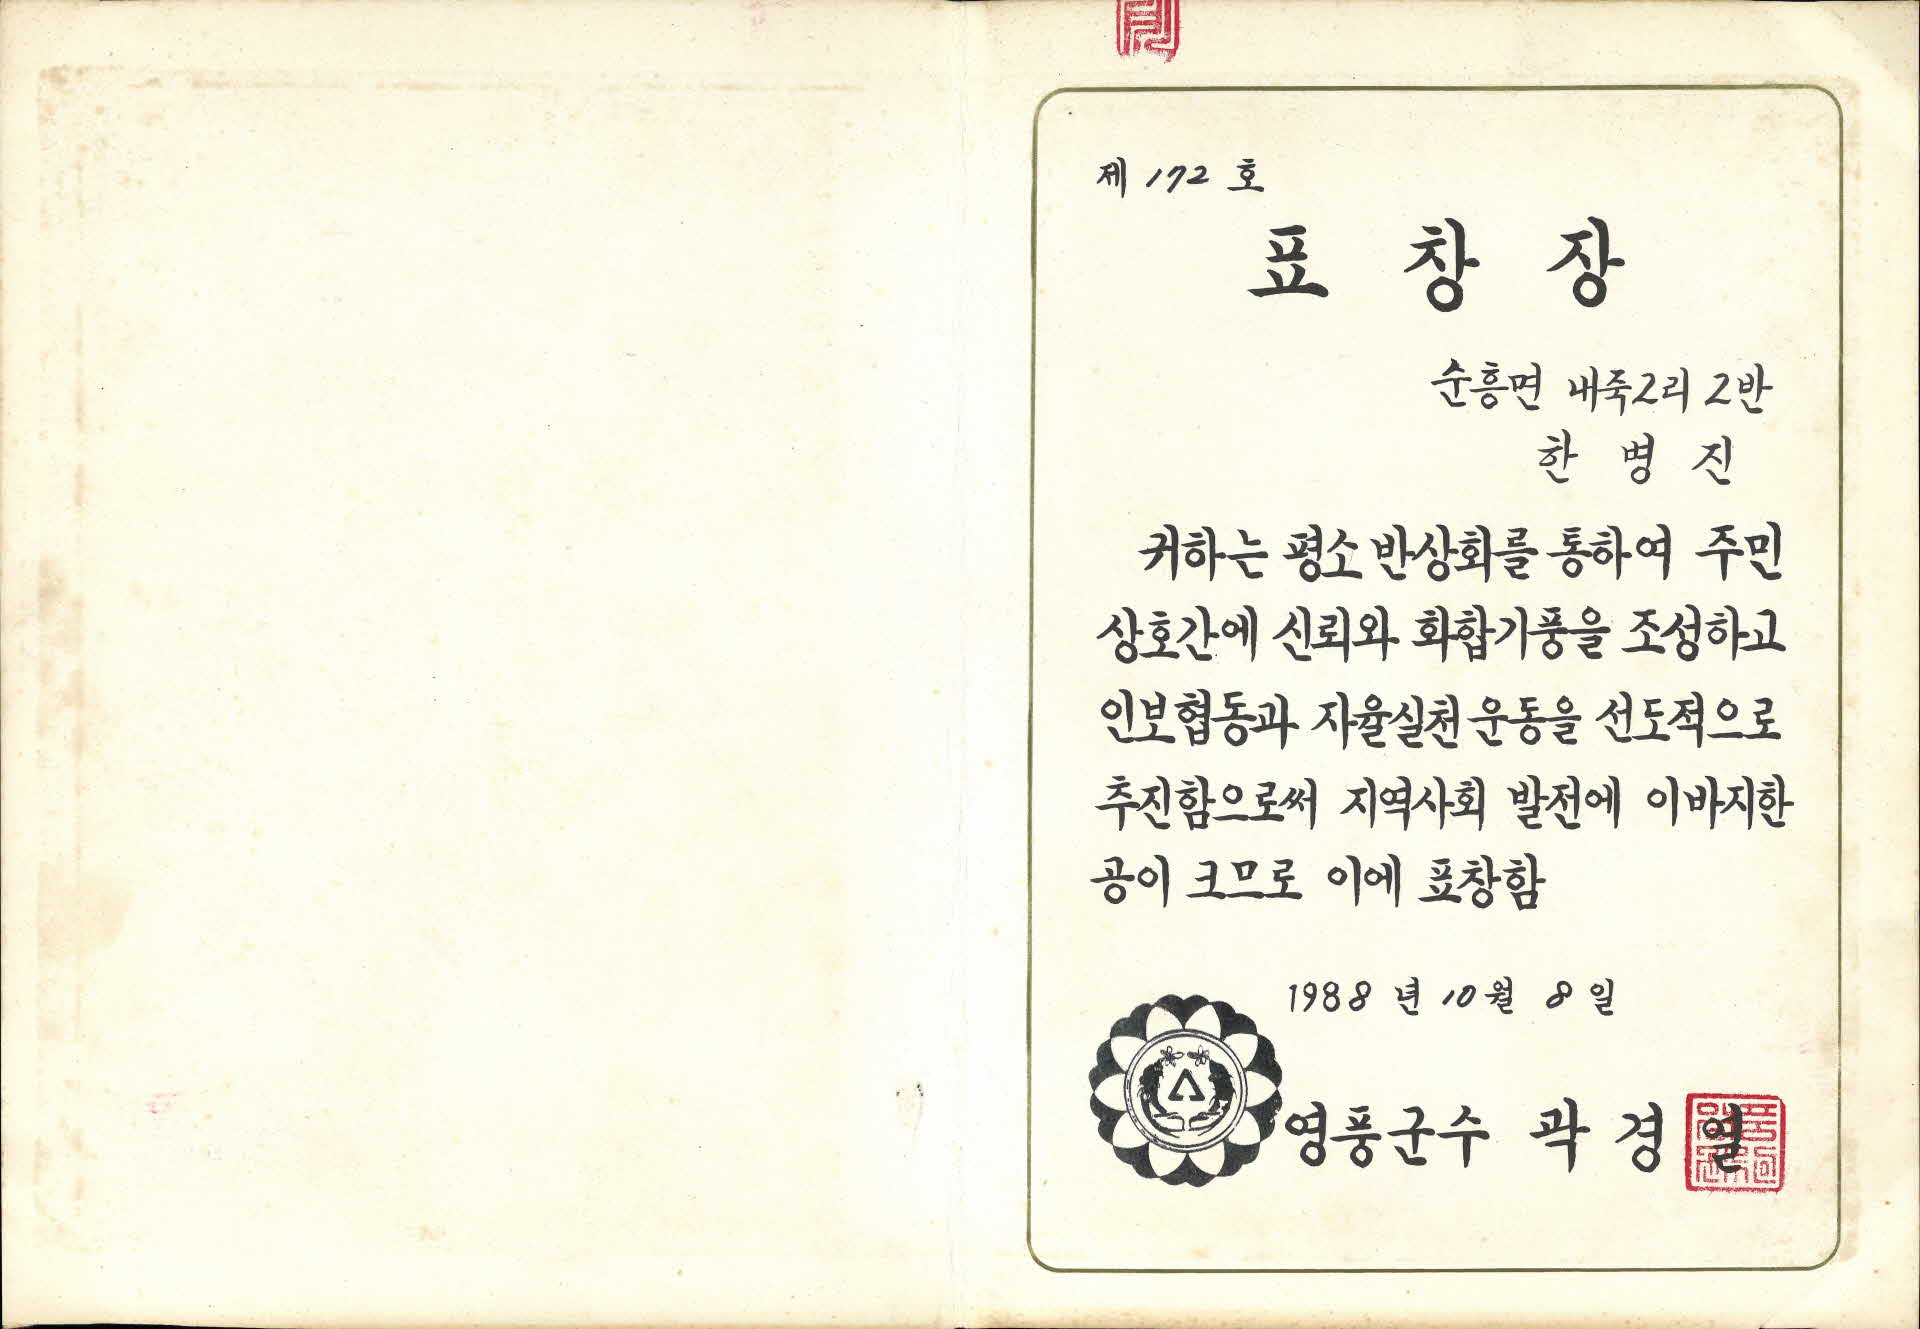 제 172 호
표 창 장
순흥면 내죽2리 2반
한 병 진
귀하는 평소 반상회를 통하여 주민
상호간에 신뢰와 화합기풍을 조성하고
인보협동과 자율실천운동을 선도적으로
추진함으로써 지역사회 발전에 이바지한
공이 크므로 이에 표창함
1988 년 10 월 8 일
영풍군수 곽 경 열